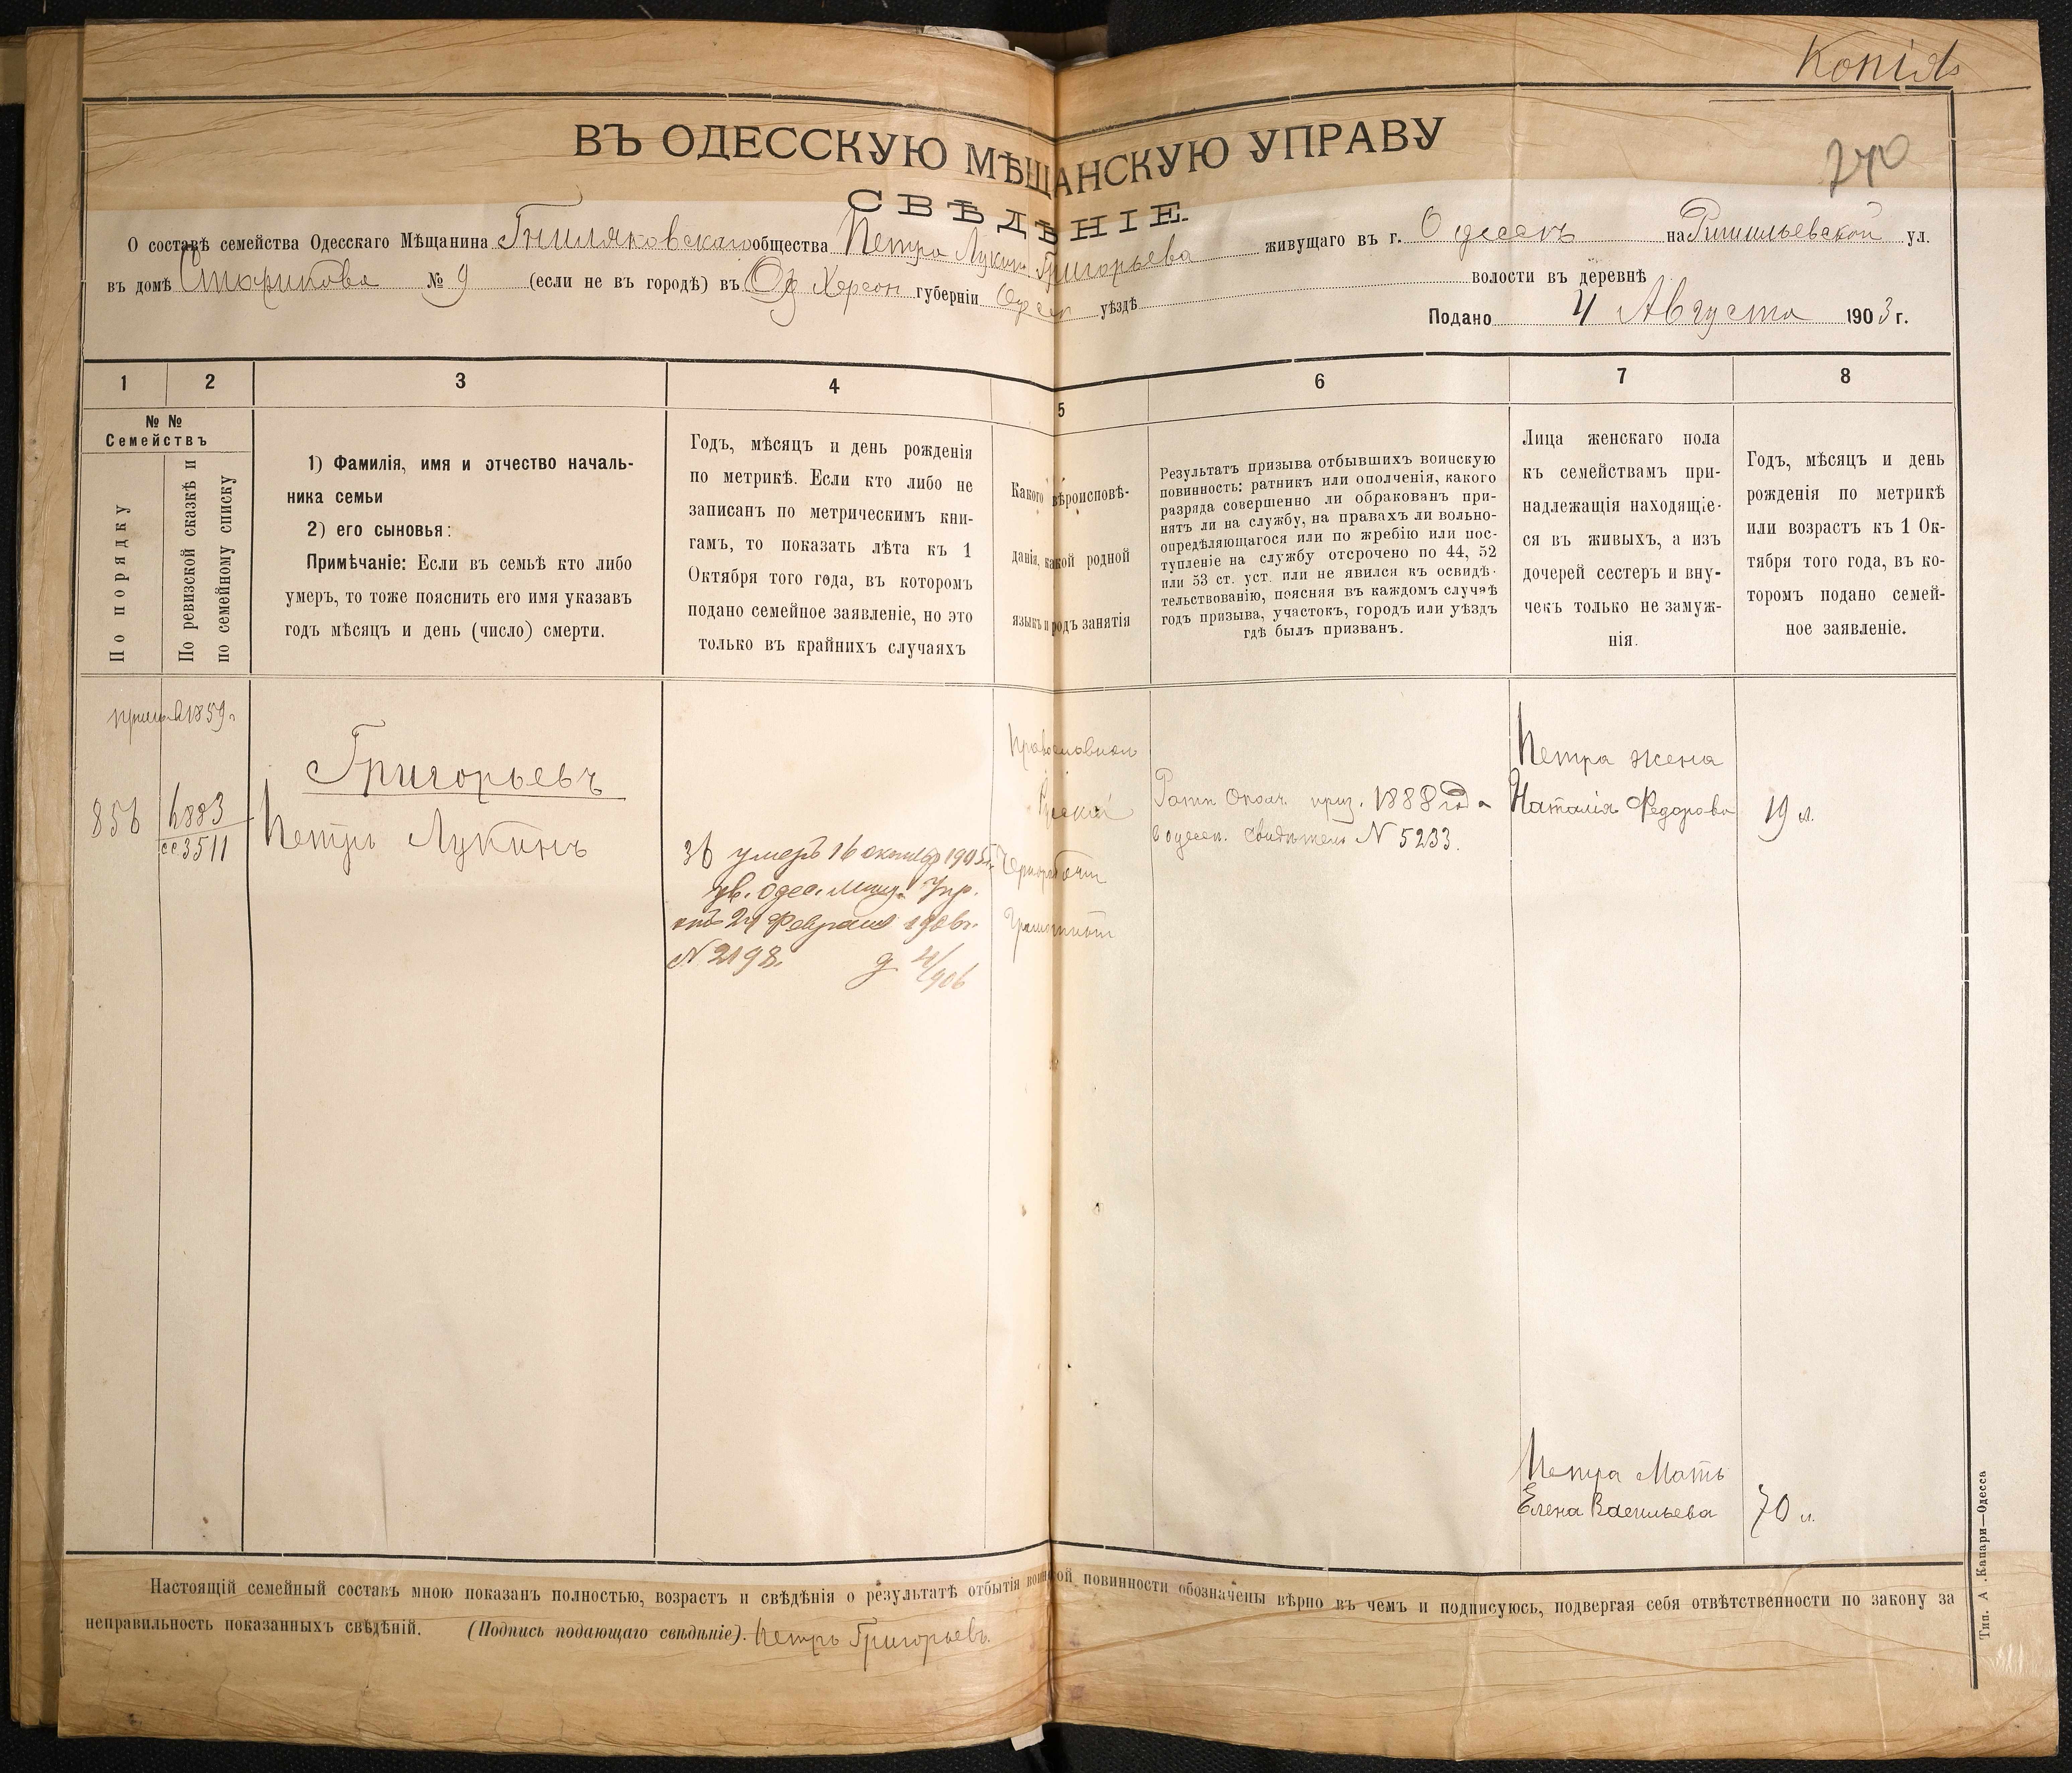 Копія
240
ВЪ ОДЕССКУЮ МѢЩАНСКУЮ УПРАВУ
СВѢДѢНІЕ
О составѣ семейства Одесскаго Мѣщанина Гниляковскаго общества Петра Лукина Григорьева живущаго въ г. Одессѣ на Ришильевской ул.
въ домѣ Старикова № 9 (если не въ городѣ) въ Херсон губерніи Одесс уѣздѣ волости въ деревнѣ
Подано 4 Августа 1903 г.
1 2 3 4 5 6 7 8
№ №
Семействъ
По порядку
По ревизской сказкѣ и
по семейному списку
1) Фамилія, имя и отчество началь-
ника семьи
2) его сыновья:
Примѣчаніе: Если въ семьѣ кто либо
умеръ, то тоже пояснить его имя указавъ
годъ мѣсяцъ и день (число) смерти.
Годъ, мѣсяцъ и день рожденія
по метрикѣ. Если кто либо не
записанъ по метрическимъ кни-
гамъ, то показать лѣта къ 1
Октября того года, въ которомъ
подано семейное заявленіе, но это
только въ крайнихъ случаяхъ
Какого вѣроисповѣ-
данія, какой родной
языкъ и родъ занятія
Результатъ призыва отбывшихъ воинскую
повинность: ратникъ или ополченія, какого
разряда совершенно ли обракованъ при-
нятъ ли на службу, на правахъ ли вольно-
опредѣляющагося или по жребію или пос-
тупленіе на службу отсрочено по 44, 52
или 53 ст. уст. или не явился къ освидѣ-
тельствованію, поясняя въ каждомъ случаѣ
годъ призыва, участокъ, городъ или уѣздъ
гдѣ былъ призванъ.
Лица женскаго пола
къ семействамъ при-
надлежащія находящіе-
ся въ живыхъ, а изъ
дочерей сестеръ и вну-
чекъ только не замуж-
нія.
Годъ, мѣсяцъ и день
рожденія по метрикѣ
или возрастъ къ 1 Ок-
тября того года, въ ко-
торомъ подано семей-
ное заявленіе.
1859 г
856
3511
Григорьевъ
Петръ Лукинъ
36 умеръ 16 октябр 1905 г.
ув. Одес. Мѣщ. Упр.
отъ 24 Февраля 1906 г.
№ 2198.
Православнаго
Русскій
Чернорабочій
Грамотный
Ратн Ополч. приз. 1888 года
в одесск. Свидѣтель N 5233.
Петра жена
Наталія Федорова
19 л.
Петра Мать
Елена Васильева
70 л.
Настоящій семейный составъ мною показанъ полностью, возрастъ и свѣдѣнія о результатѣ отбытія воинской повинности обозначены вѣрно въ чемъ и подписуюсь, подвергая себя отвѣтственности по закону за
неправильность показанныхъ свѣдѣній. (Подпись подающаго свѣдѣніе). Петръ Григорьевъ.
Тип. А. Капари—Одесса